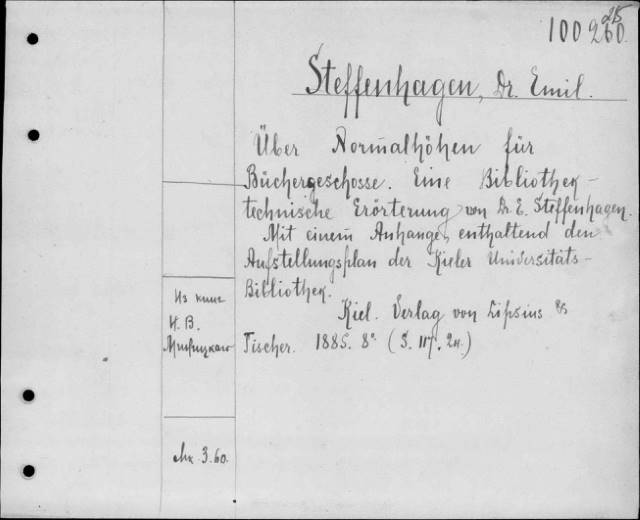 25
100260.
Steffenhagen, Dr. Emil.
Über Normalhöhen für
Büchergeschosse. Eine Bibliothek-
technische Erörterung von Dr. E. Steffenhagen.
Mit einem Anhange, enthaltend den
Aufstellungsplan der Kieler Universitäts-
Bibliothek.
Kiel. Verlag von Lipsius &
Tischer. 1885. 8° (S. 117. 2 н.)
Из книг
И. В.
Мх. 3.60.